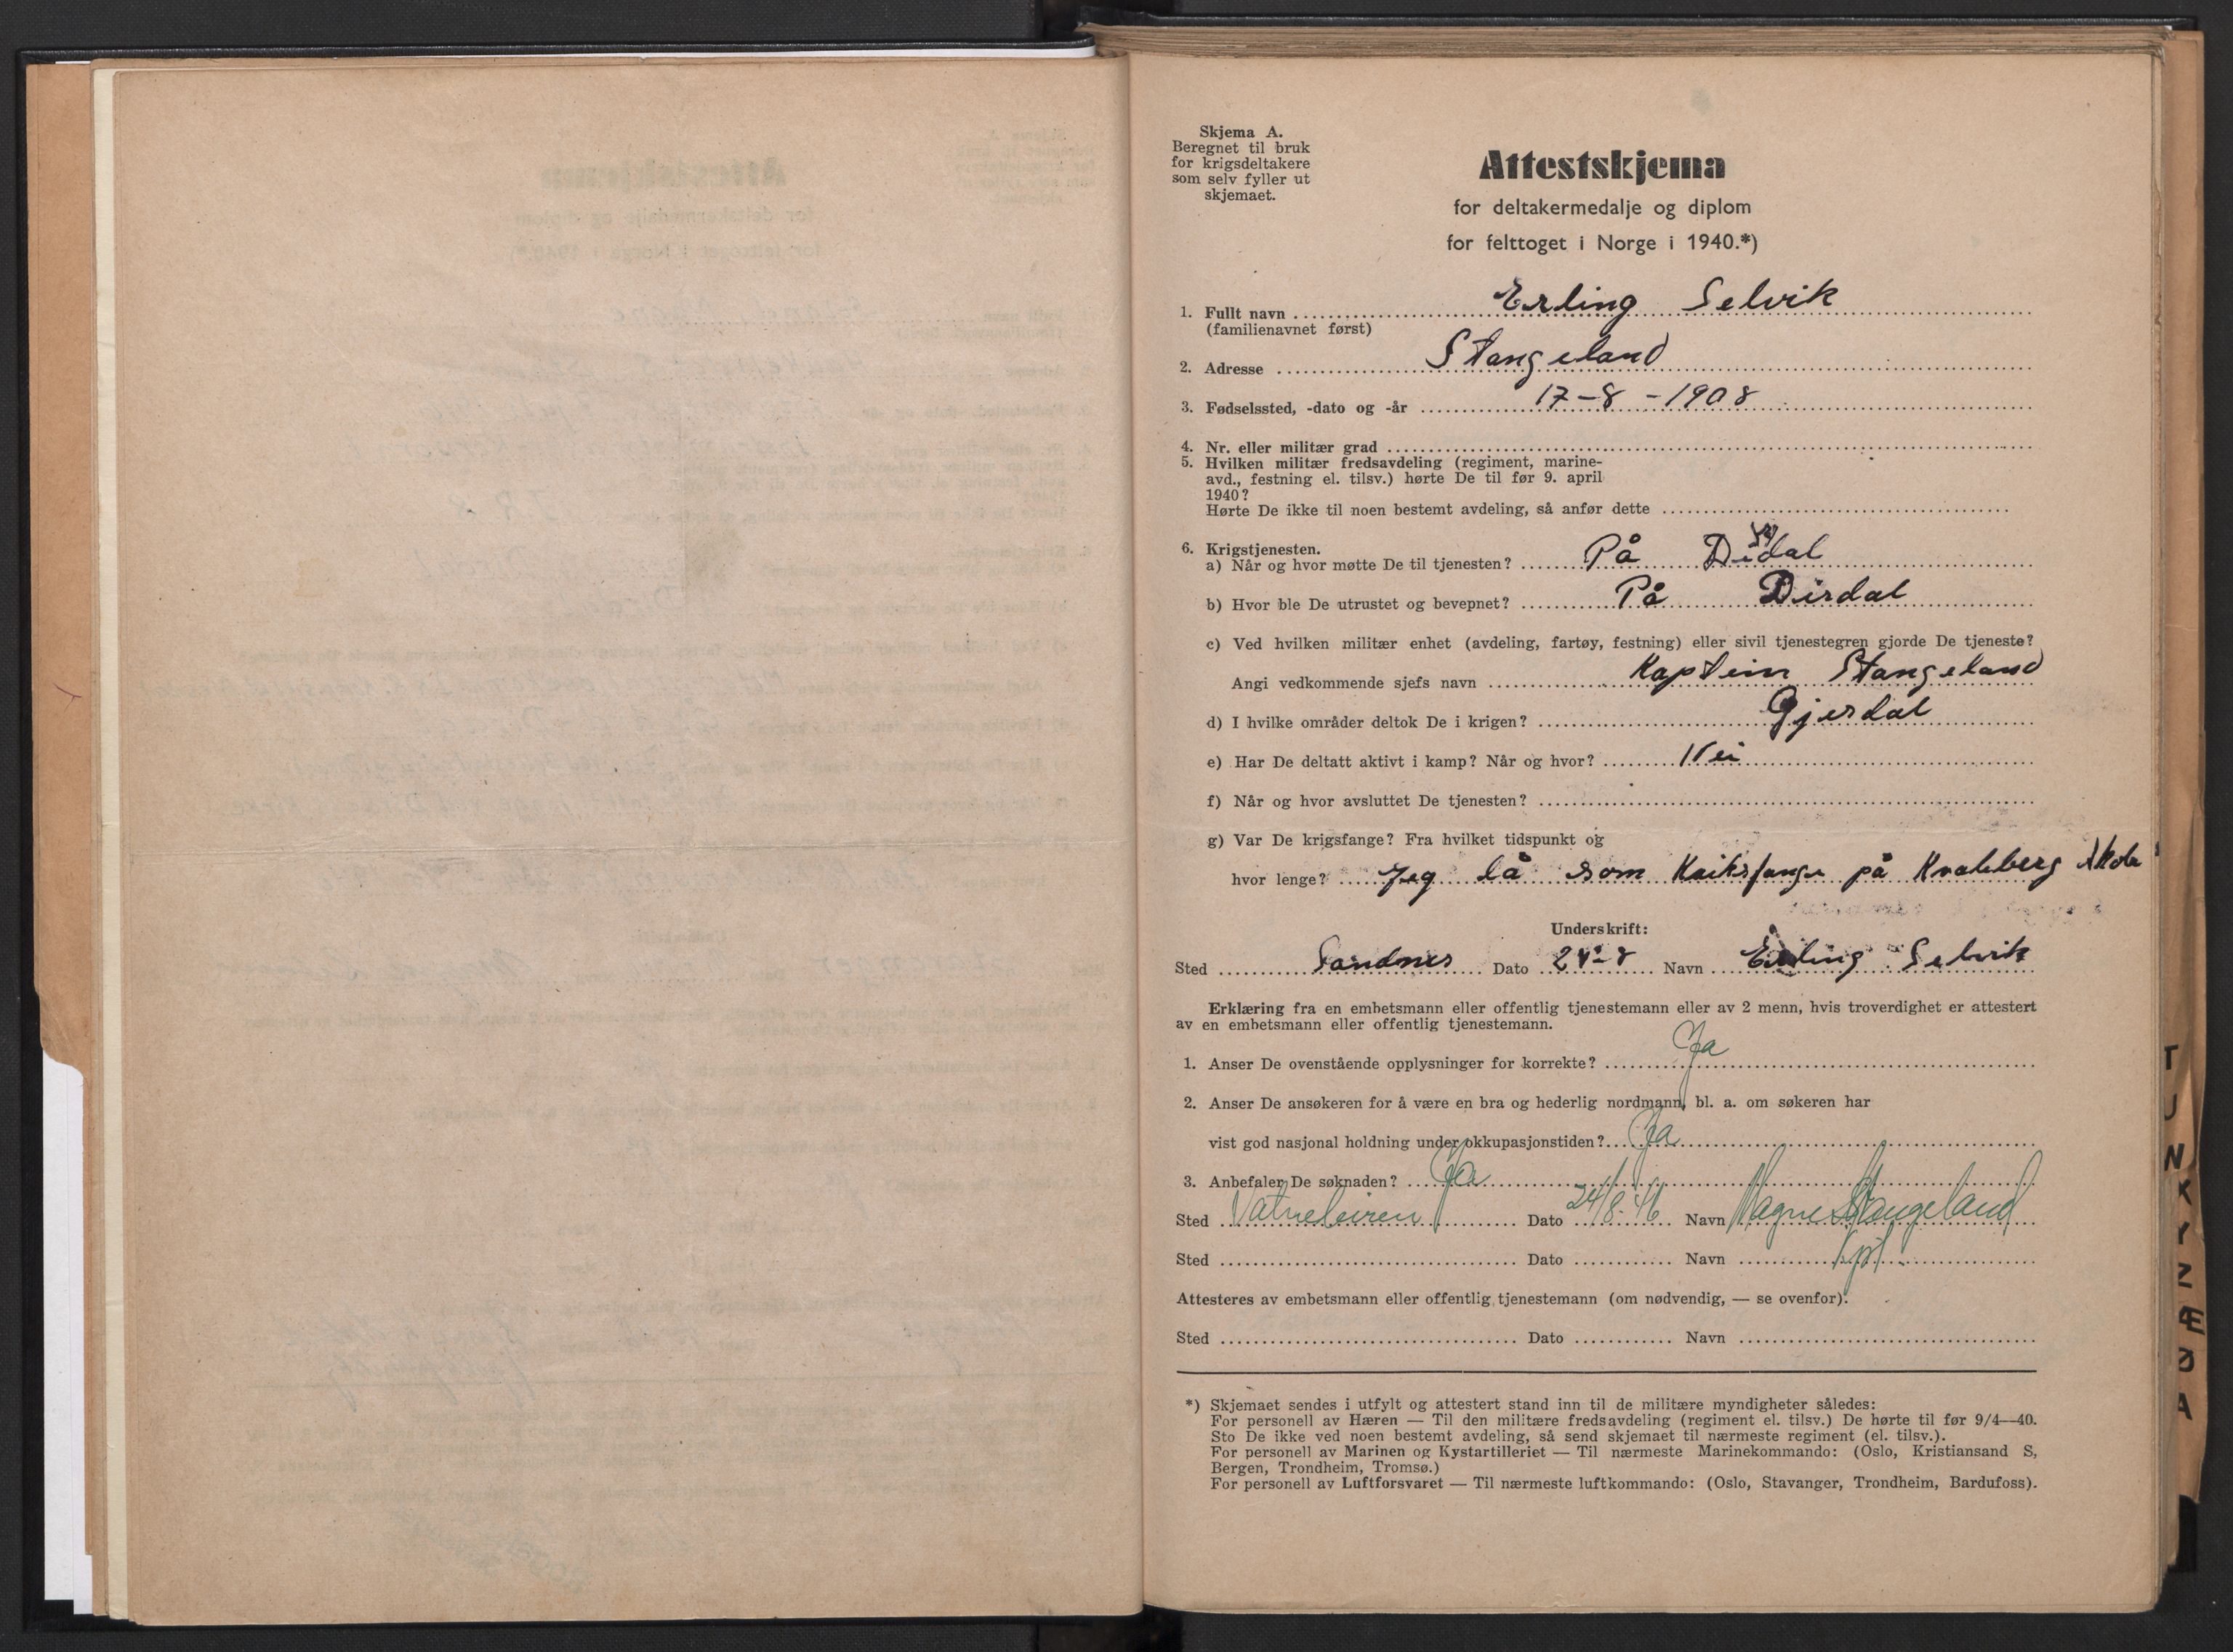 Skjema A.
Beregnet til bruk
for krigsdeltakere
som selv fyller ut
skjemaet.
Attestskjema
for deltakermedalje og diplom
for felttoget i Norge i 1940.*)
1. Fullt navn ..... Erling Selvik
(familienavnet først)
2. Adresse ..... Stangeland
3. Fødselssted, -dato og -år ..... 17-8-1908
4. Nr. eller militær grad .....
5. Hvilken militær fredsavdeling (regiment, marine-
avd., festning el. tilsv.) hørte De til før 9. april
1940?
Hørte De ikke til noen bestemt avdeling, så anfør dette .....
6. Krigstjenesten.
a) Når og hvor møtte De til tjenesten? ..... På Didal
b) Hvor ble De utrustet og bevepnet? ..... På Dirdal
c) Ved hvilken militær enhet (avdeling, fartøy, festning) eller sivil tjenestegren gjorde De tjeneste?
Angi vedkommende sjefs navn ..... Kaptein Stangeland
d) I hvilke områder deltok De i krigen? ..... Gjerdal
e) Har De deltatt aktivt i kamp? Når og hvor? ..... Nei
f) Når og hvor avsluttet De tjenesten? .....
g) Var De krigsfange? Fra hvilket tidspunkt og
hvor lenge? ..... Jeg lå som på Kvaleberg Skole
Underskrift:
Sted ..... Sandnes Dato Navn ..... Erling Selvik
Erklæring fra en embetsmann eller offentlig tjenestemann eller av 2 menn, hvis troverdighet er attestert
av en embetsmann eller offentlig tjenestemann.
1. Anser De ovenstående opplysninger for korrekte? ..... Ja
2. Anser De ansøkeren for å være en bra og hederlig nordmann, bl. a. om søkeren har
vist god nasjonal holdning under okkupasjonstiden? ..... Ja
3. Anbefaler De søknaden? ..... Ja
Sted ..... Vatneleiren Dato ..... 24/8-46 Navn Magne Stangeland
Sted ..... Dato ..... Navn ..... Kpt
Attesteres av embetsmann eller offentlig tjenestemann (om nødvendig, — se ovenfor).
Sted ..... Dato ..... Navn .....
*) Skjemaet sendes i utfylt og attestert stand inn til de militære myndigheter således:
For personell av Hæren — Til den militære fredsavdeling (regiment el. tilsv.) De hørte til før 9/4—40.
Sto De ikke ved noen bestemt avdeling, så send skjemaet til nærmeste regiment (el. tilsv.).
For personell av Marinen og Kystartilleriet — Til nærmeste Marinekommando: (Oslo, Kristiansand S,
Bergen, Trondheim, Tromsø.)
For personell av Luftforsvaret — Til nærmeste luftkommando: (Oslo, Stavanger, Trondheim, Bardufoss).